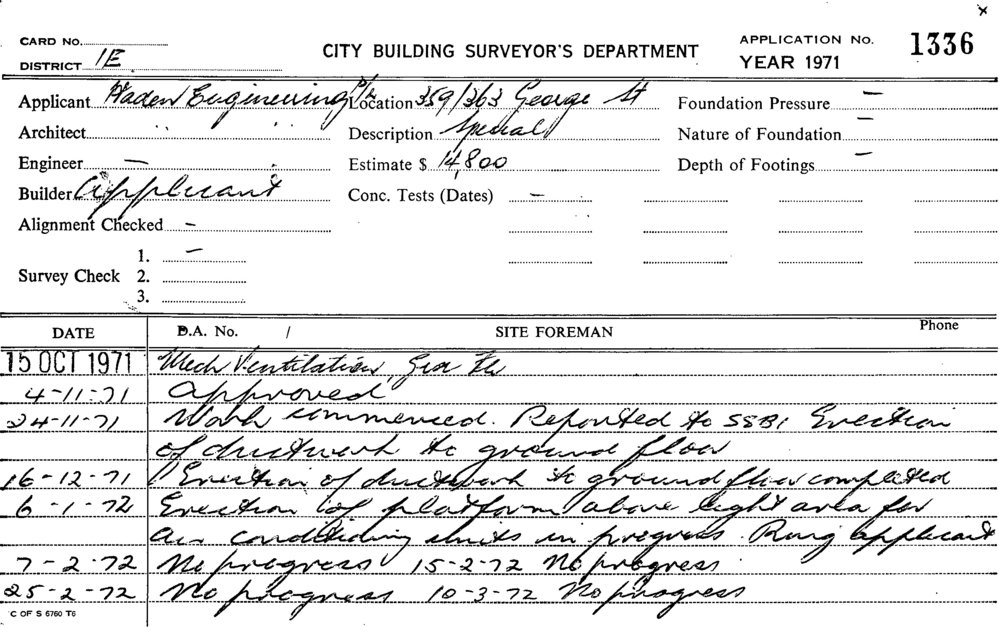 CARD No.
DISTRICT 1E
CITY BUILDING SURVEYOR'S DEPARTMENT
APPLICATION No. 1336
YEAR 1971
Applicant Haden Engineering P/L Location 359/363 George St Foundation Pressure –
Architect " " Description Special Nature of Foundation –
Engineer – Estimate $ 14,800 Depth of Footings –
Builder Applicant Conc. Tests (Dates) –
Alignment Checked –
1. –
Survey Check 2.
3.
DATE D.A. No. / SITE FOREMAN Phone
15 OCT 1971 Mech Ventilation, Grd Flr
4-11-71 Approved
24-11-71 Work commenced. Reported to SSBI Erection
of ductwork to ground floor
16-12-71 Erection of ductwork to ground floor completed
6-1-72 Erection of platform above light area for
air conditioning units in progress. Ring applicant
7-2-72 No progress 15-2-72 No progress
25-2-72 No progress 10-3-72 No progress
C OF S 6760 T6